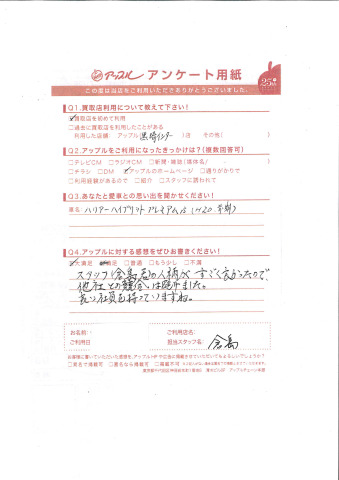 アップル アンケート用紙
この度は当店をご利用いただきありがとうございました。
Q1.買取店利用について教えて下さい！
□買取店を初めて利用
□過去に買取店を利用したことがある
利用した店舗： アップル 黒埼インター 店 その他( )
Q2.アップルをご利用になったきっかけは？(複数回答可)
□テレビCM □ラジオCM □新聞・雑誌(媒体名/ )
□チラシ □DM □アップルのホームページ □通りがかりで
□利用経験があるので □紹介 □スタッフに誘われて
Q3.あなたと愛車との思い出を聞かせてください！
ハリアーハイブリッド プレミアム
Q4.アップルに対する感想をぜひお書きください！
□大満足 □満足 □普通 □もう少し □不満
スタッフ(倉島君)の人柄がすごく良かったので、
他社との競合は避けました。
良い社員を持っていますね。
お名前： ご利用店名：
ご利用日 担当スタッフ名： 倉島
お客様に書いていただいた感想を、アップルHPや広告に掲載させていただいてもよろしいでしょうか？
□実名で掲載可 □匿名なら掲載可 □掲載不可